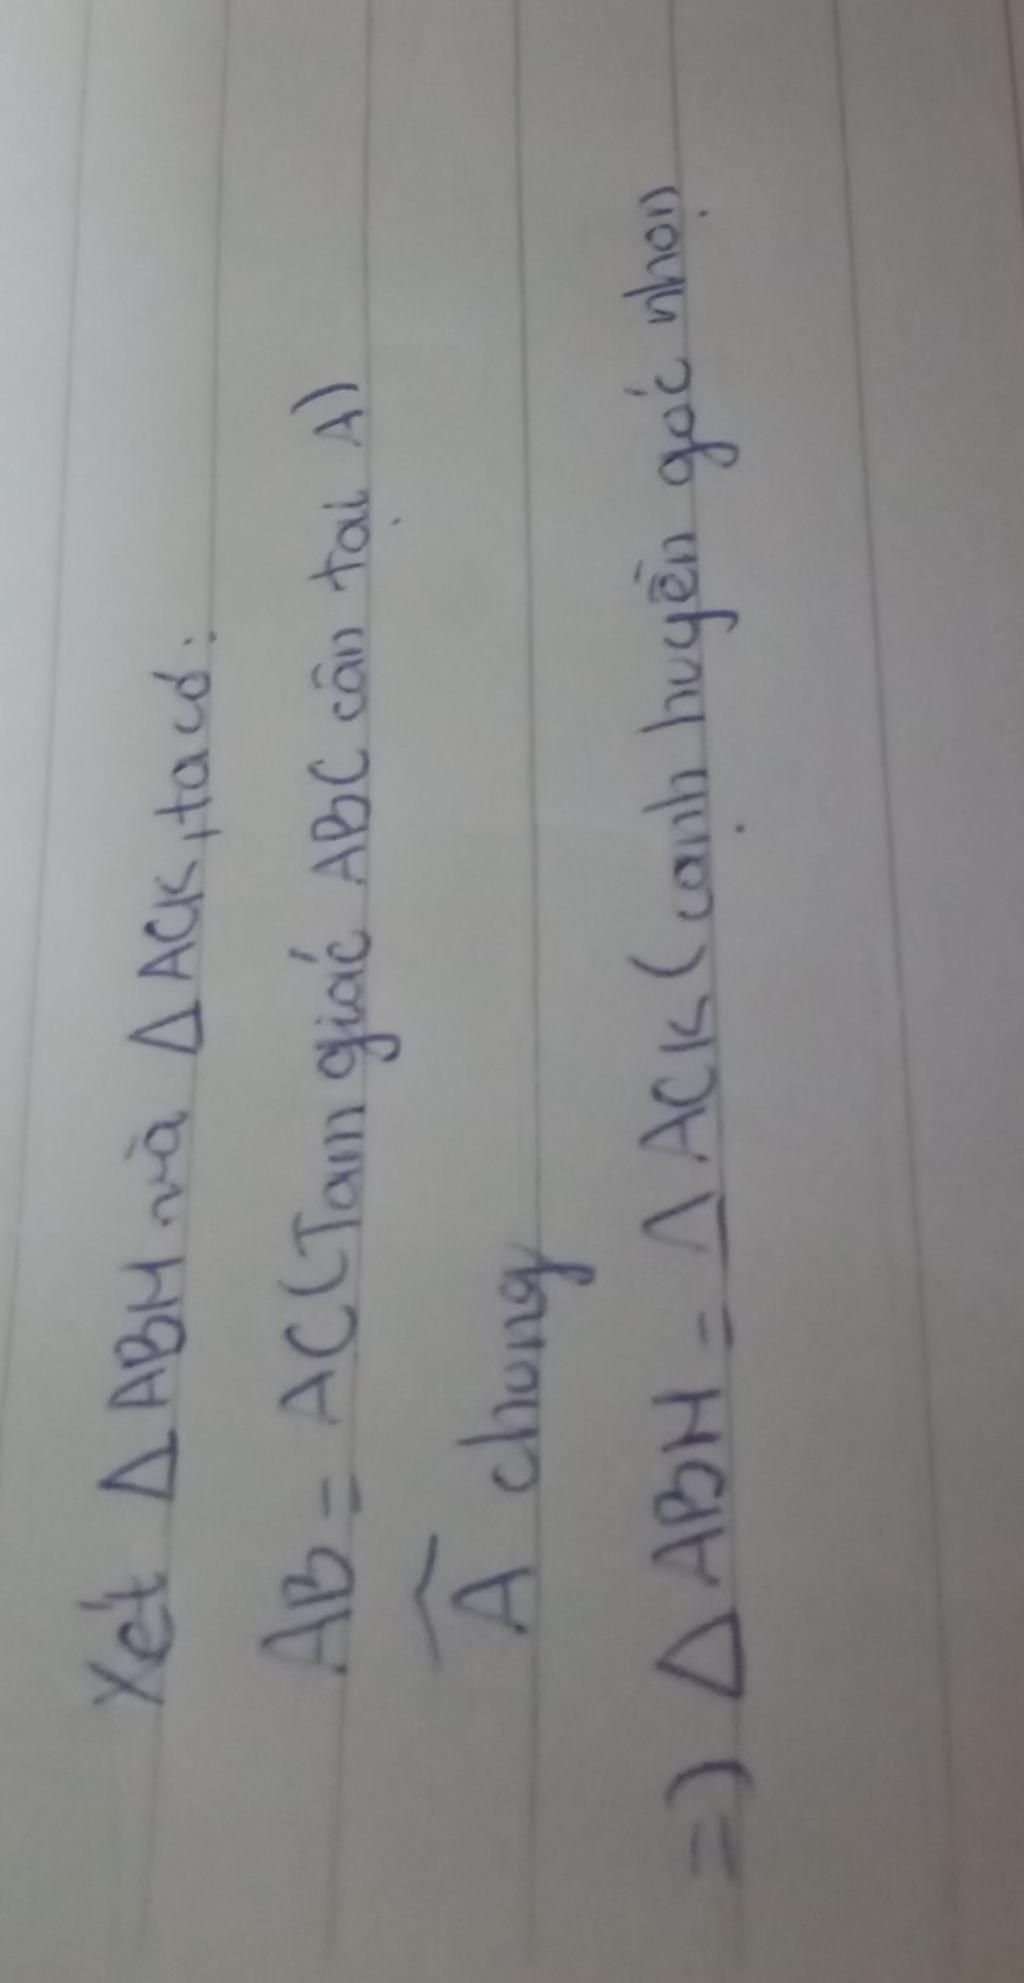 Xét Δ ABH và Δ ACK, ta có:
AB = AC (Tam giác ABC cân tại A)
Â chung
=) Δ ABH = Δ ACK (cạnh huyền góc nhọn